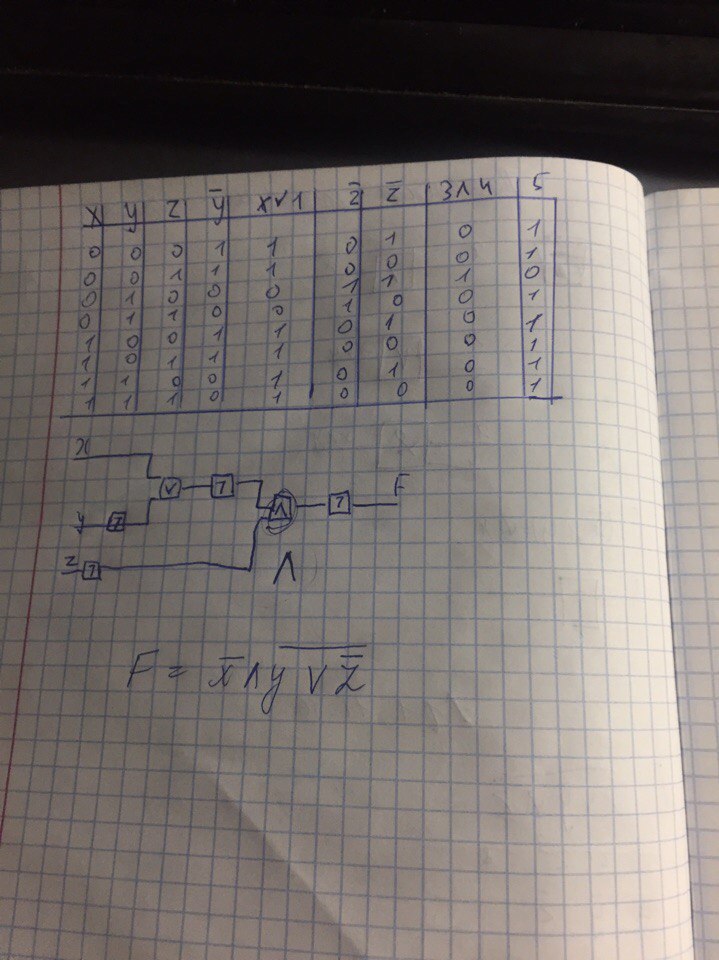 x y z ȳ x∨1 2̄ z̄ 3∧4 5
0 0 0 1 1 0 1 0 1
0 0 1 1 1 0 0 0 1
0 1 0 0 0 1 1 1 0
0 1 1 0 0 1 0 0 1
1 0 0 1 1 0 1 0 1
1 0 1 1 1 0 0 0 1
1 1 0 0 1 0 1 0 1
1 1 1 0 1 0 0 0 1
x
∨ 7 ∧ 7 F
y 7
z 7
∧
F = x̄ ∧ y ∨ z̄